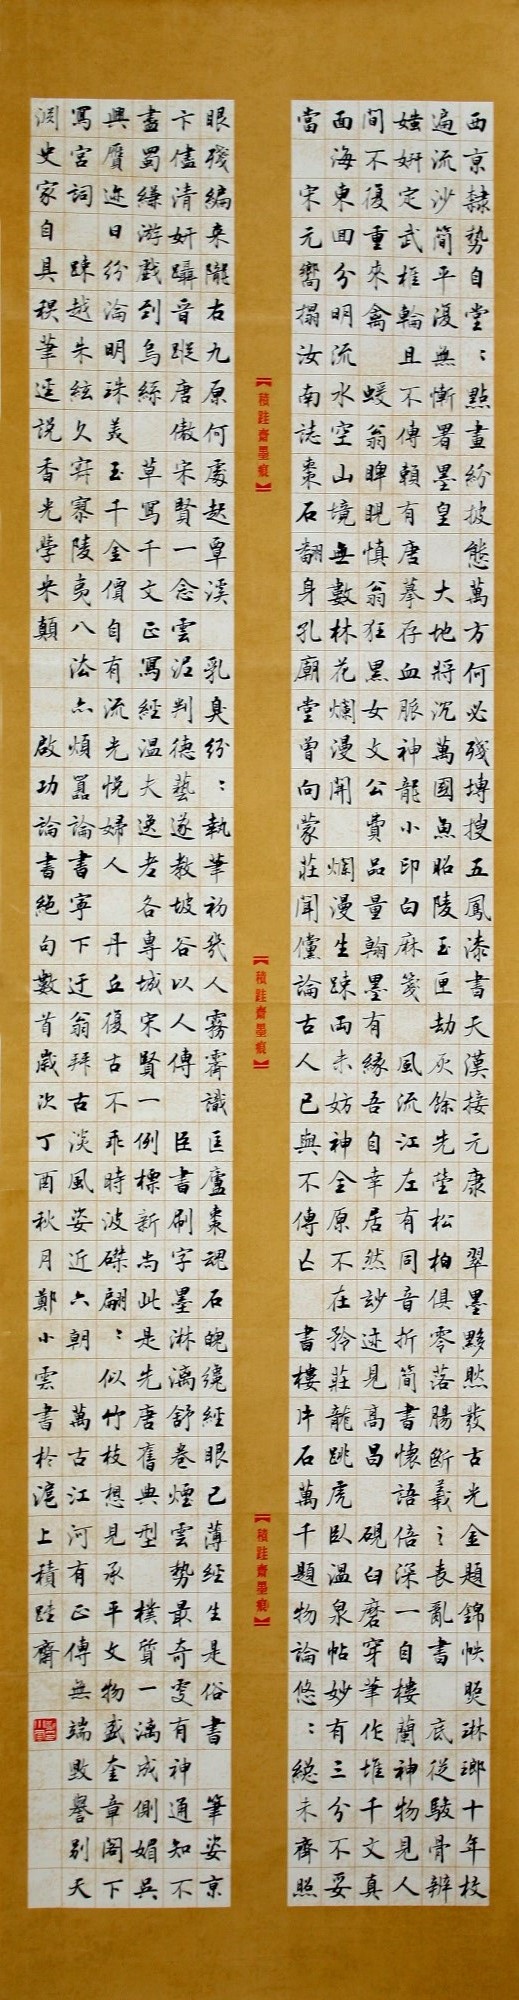 西京隸勢自堂〻點畫紛披態萬方何必殘塼搜五鳳漆書天漢接元康 翠墨黟然發古光金題錦帙照琳瑯十年校
遍流沙簡平復無慚署墨皇 大地將沉萬國魚昭陵玉匣劫灰餘先塋松柏俱零落腸斷羲〻喪亂書 底從駿骨辨
媸妍定武椎輪且不傳賴有唐摹存血脈神龍小印白麻箋 風流江左有同音折簡書懷語倍深一自樓蘭神物見人
間不復重來禽 蝯翁睥睨慎翁狂黑女文公費品量翰墨有緣吾自幸居然妙迹見高昌 硯臼磨穿筆作堆千文真
面海東回分明流水空山境無數林花爛漫開 爛漫生疎兩未妨神全原不在矜莊龍跳虎臥溫泉帖妙有三分不妥
當 宋元嚮搨汝南誌棗石翻身孔廟堂曾向蒙莊聞儻論古人已與不傳亡 書樓片石萬千題物論悠〻總未齊照
【積跬齋墨痕】
【積跬齋墨痕】
【積跬齋墨痕】
眼殘編來隴右九原何處起覃溪 乳臭紛〻執筆初幾人霧霽識匡廬棗魂石魄纔經眼已薄經生是俗書 筆姿京
卞儘清妍躡晉蹤唐傲宋賢一念雲泥判德藝遂教坡谷以人傳 臣書刷字墨淋漓舒卷煙雲勢最奇更有神通知不
盡蜀縑游戲到烏絲 草寫千文正寫經溫夫逸老各專城宋賢一例標新尚此是先唐舊典型 樸質一漓成側媚吳
興贗迹日紛淪明珠美玉千金價自有流光悅婦人 丹丘復古不乖時波磔翩〻似竹枝想見承平文物盛奎章閣下
寫宮詞 疎越朱絃久寂寥陵夷八法亦煩囂論書寧下迂翁拜古淡風姿近六朝 萬古江河有正傳無端毀譽別天
淵史家自具筆逕說香光學米顛 啟功論書絕句數首歲次丁酉秋月鄭小雲書於滬上積跬齋